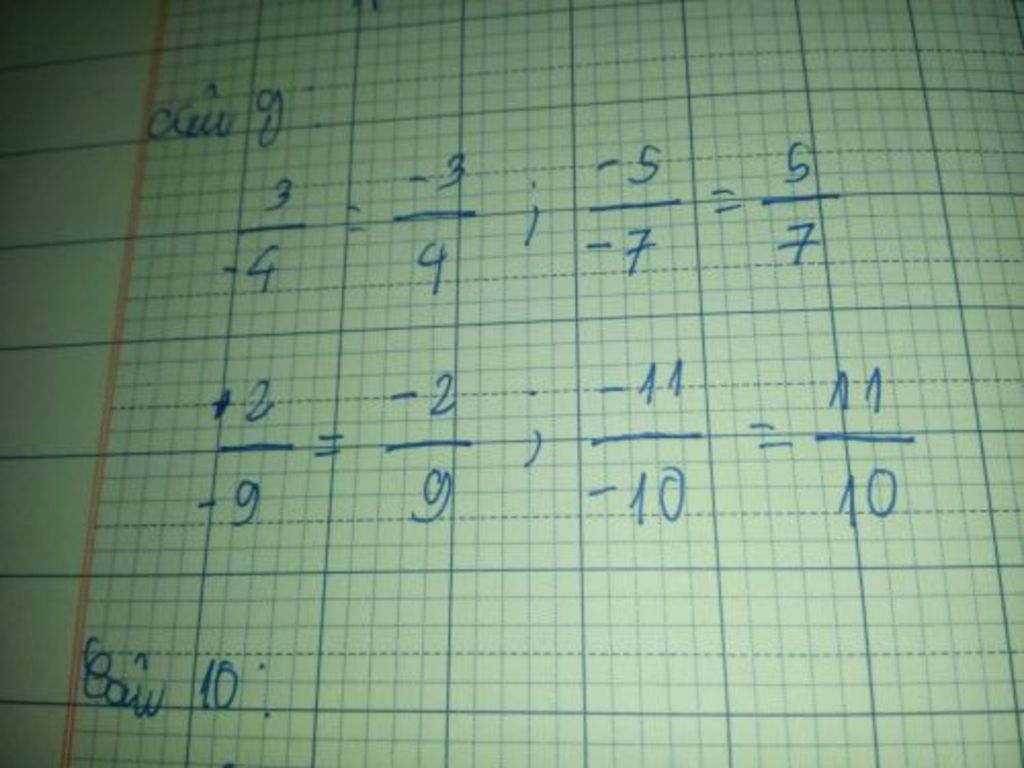 câu 9:
3/-4 = -3/4 ; -5/-7 = 5/7
2/-9 = -2/9 ; -11/-10 = 11/10
Câu 10: